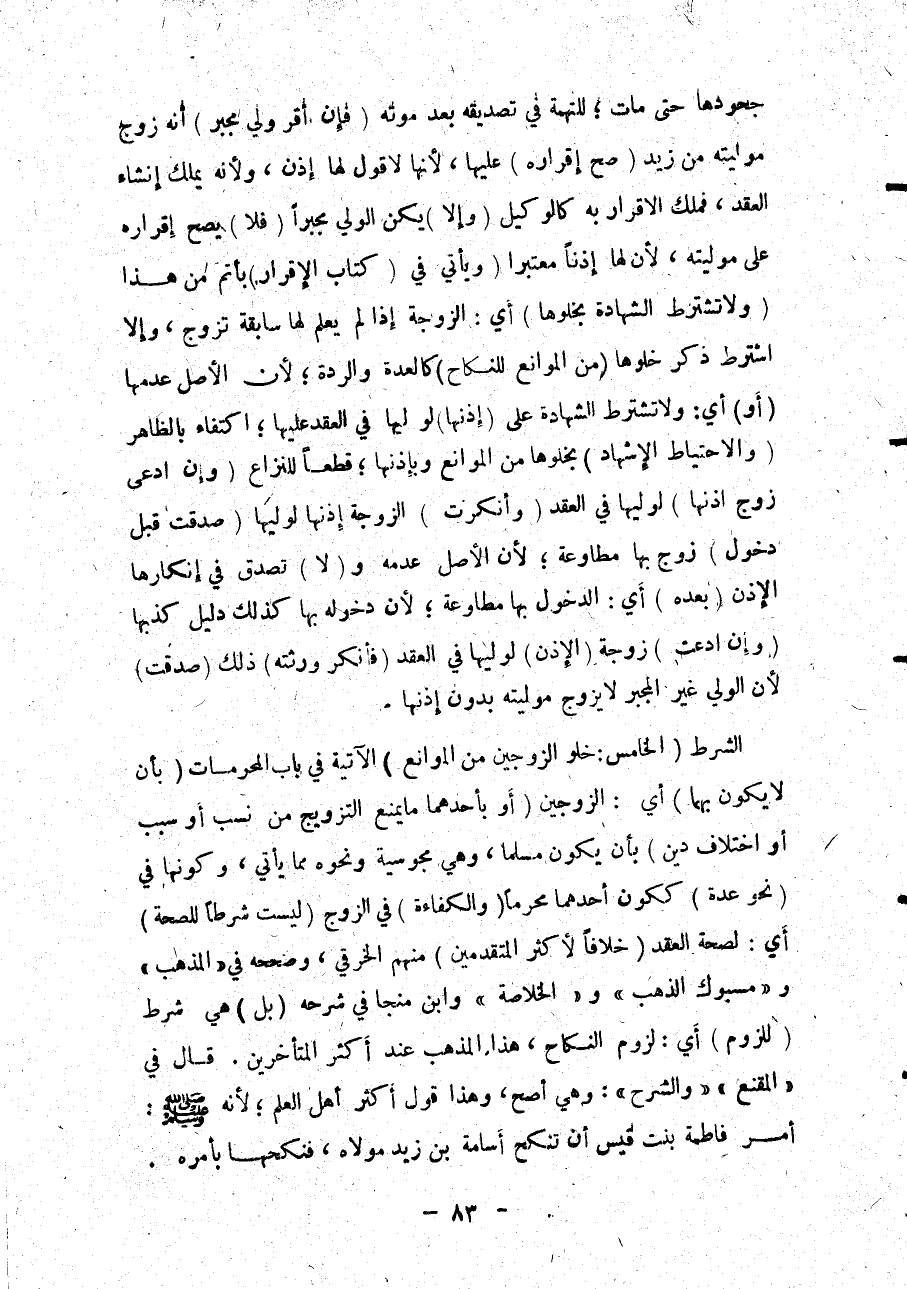 جحودها حتى مات ؛ للتهمة في تصديقه بعد موته ( فإن أقر ولي مجبر ) أنه زوج
موليته من زيد ( صح إقراره ) عليها ، لأنها لا قول لها إذن ، ولأنه يملك إنشاء
العقد ، فملك الاقرار به كالوكيل ( وإلا ) يكن الولي مجبراً ( فلا ) يصح إقراره
على موليته ، لأن لها إذناً معتبرا ( ويأتي في ( كتاب الإقرار ) بأتم من هـذا
( ولا تشترط الشهادة بخلوها ) أي : الزوجة إذا لم يعلم لها سابقة تزوج ، وإلا
اشترط ذكر خلوها ( من الموانع للنكاح ) كالعدة والردة ؛ لأن الأصل عدمها
( أو ) أي : ولا تشترط الشهادة على ( إذنها ) لوليها في العقد عليها ؛ اكتفاء بالظاهر
( والاحتياط الإشهاد ) بخلوها من الموانع وبإذنها ؛ قطعـاً للنزاع ( وإن ادعى
زوج اذنها ) لوليها في العقد ( وأنكرت ) الزوجة إذنها لوليها ( صدقت قبل
دخول ) زوج بها مطاوعة ؛ لأن الأصل عدمه و ( لا ) تصدق في إنكارها
الإذن ( بعده ) أي : الدخول بها مطاوعة ؛ لأن دخوله بها كذلك دليل كذبها
( وإن ادعت ) زوجة ( الإذن ) لوليها في العقد ( فأنكر ورثته ) ذلك ( صدقت )
لأن الولي غير المجبر لا يزوج موليته بدون إذنها .
الشرط ( الخامس : خلو الزوجين من الموانع ) الآتية في باب المحرمـات ( بأن
لا يكون بهما ) أي : الزوجين ( أو بأحدهما مايمنع التزويج من نسب أو سبب
أو اختلاف دين ) بأن يكون مسلما ، وهي مجوسية ونحوه مما يأتي ، وكونها في
( نحو عدة ) ككون أحدهما محرماً ( والكفاءة ) في الزوج ( ليست شرطاً للصحة )
أي : لصحة العقد ( خلافاً لأكثر المتقدمين ) منهم الخرقي ، وصححه في « المذهب »
و « مسبوك الذهب » و « الخلاصة » وابن منجا في شرحه ( بل ) هي شرط
( للزوم ) أي : لزوم النـكاح ، هذا المذهب عند أكثر المتأخرين . قـال في
« المقنع » « والشرح » : وهي أصح ، وهذا قول أكثر أهل العلم ؛ لأنه ﷺ :
أمـر فاطمة بنت قيس أن تنكح أسامة بن زيد مولاه ، فنكحهـا بأمره .
- ٨٣ -